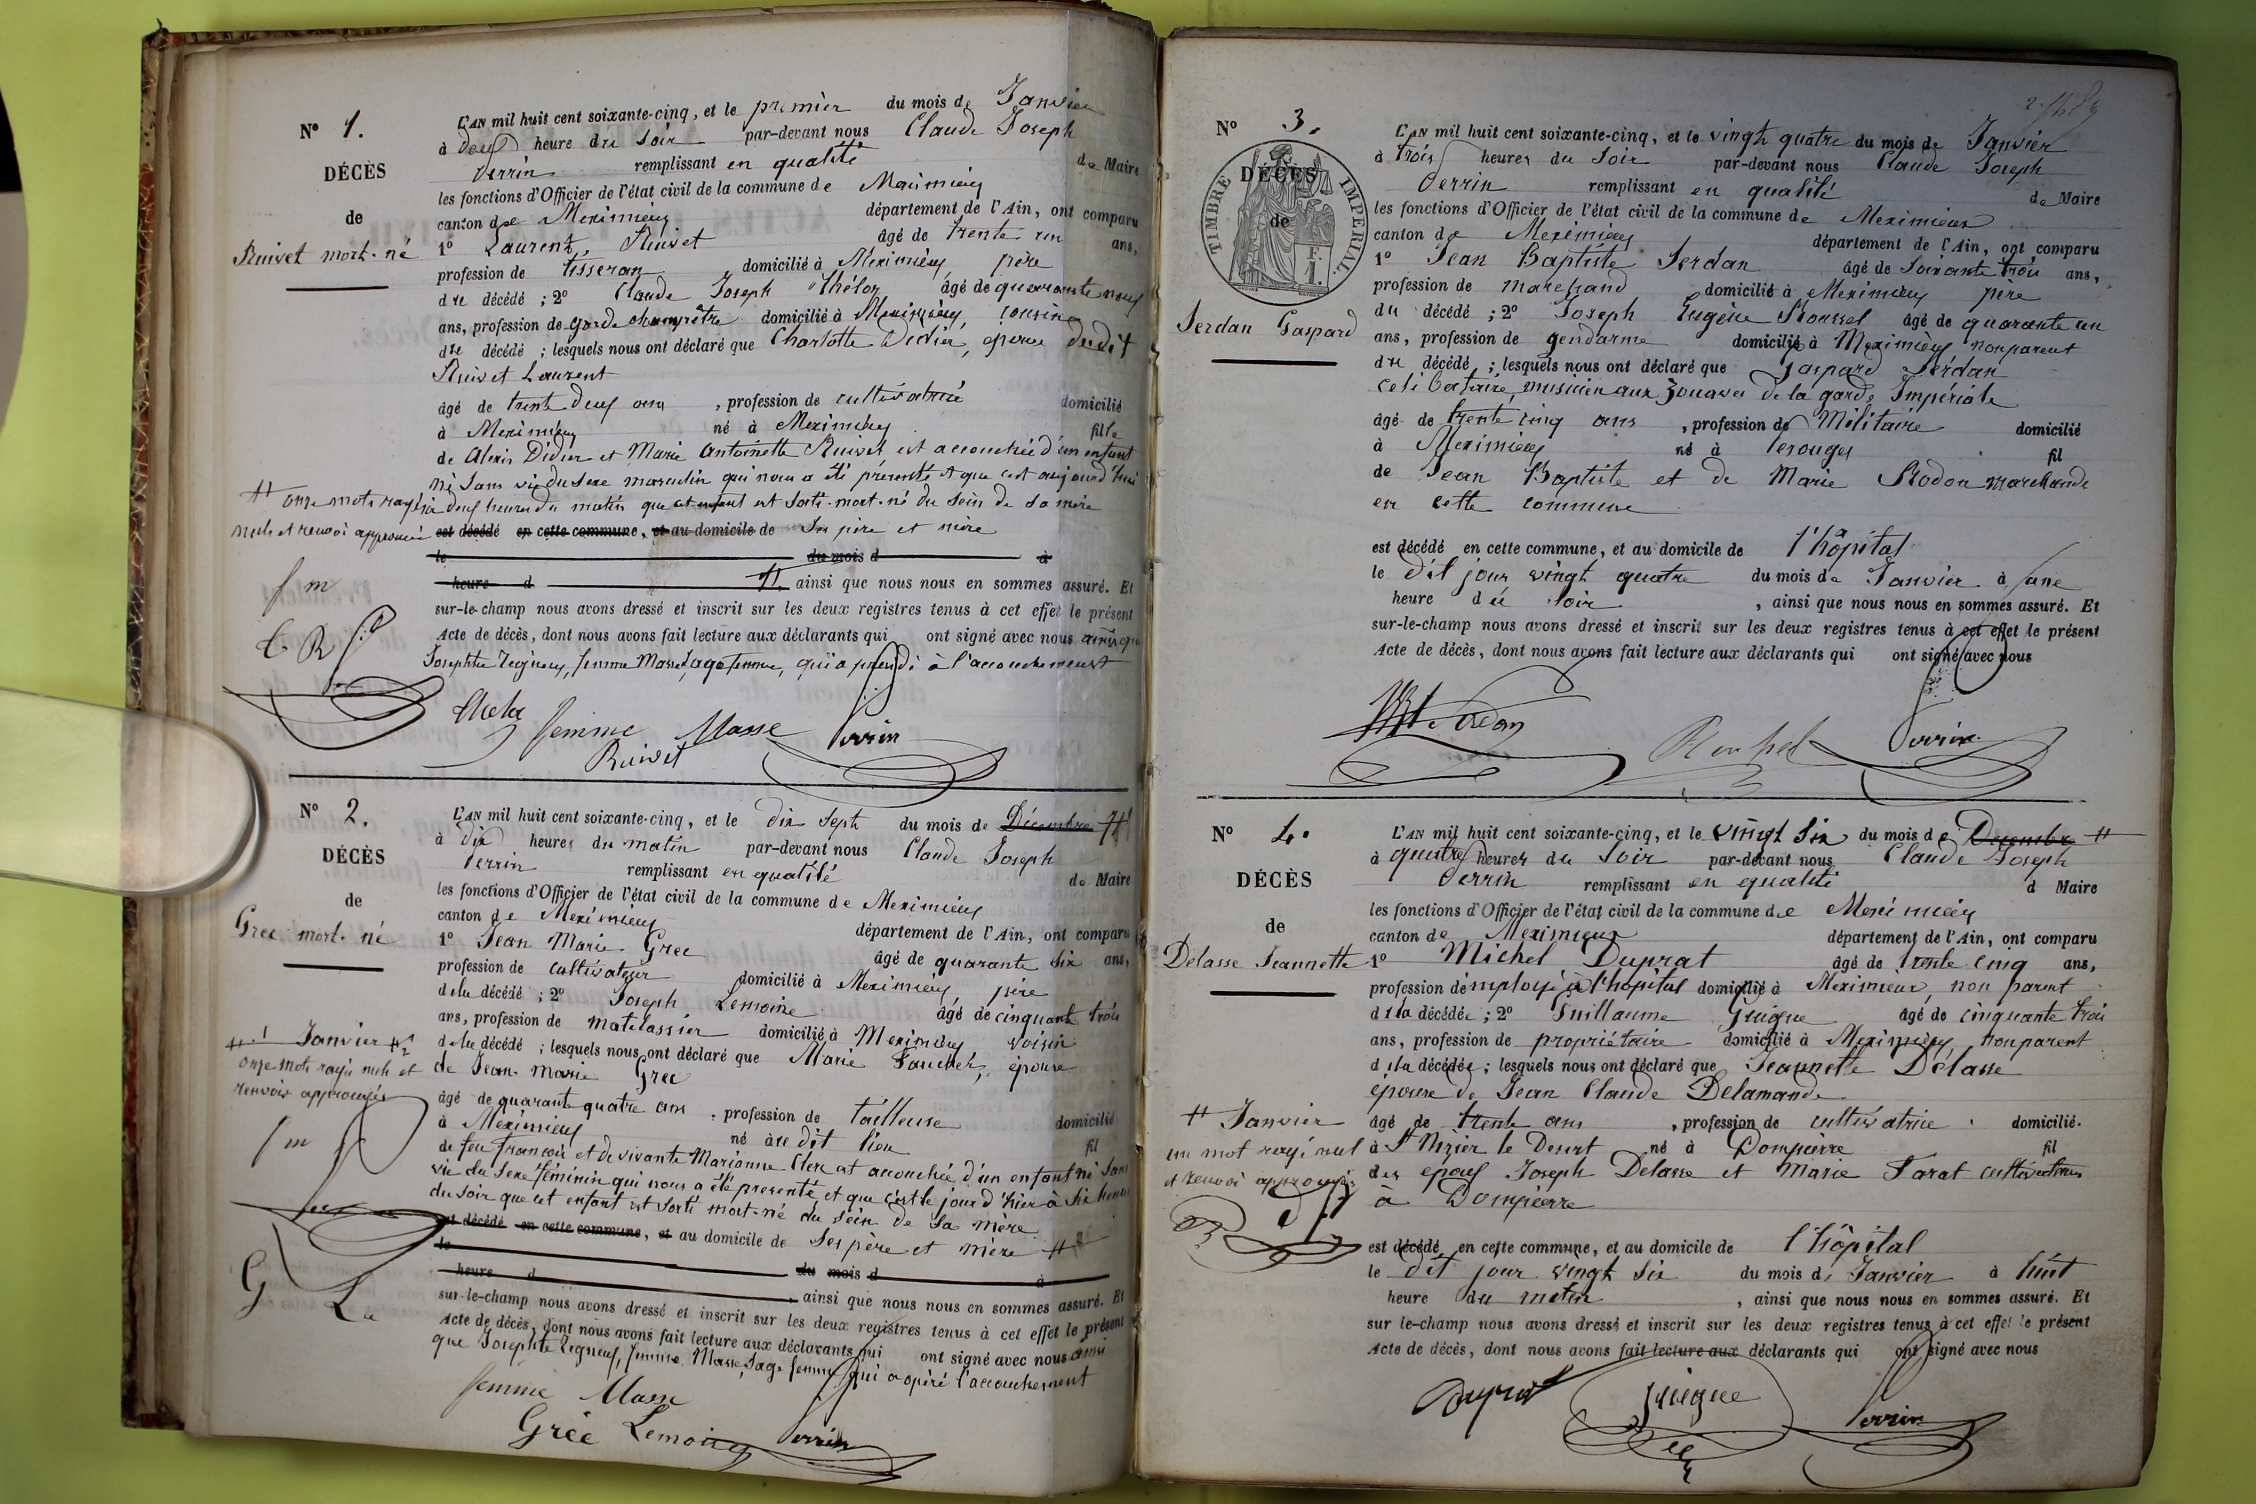 N° 1.
DÉCÈS
de
Ruivet mort-né
L'AN mil huit cent soixante-cinq, et le premier du mois de Janvier
à deux heure du soir par-devant nous Claude Joseph
Perrin remplissant en qualité de Maire
les fonctions d'Officier de l'état civil de la commune de Meximieux
canton de Meximieux département de l'Ain, ont comparu
1° Laurent Ruivet âgé de trente un ans,
profession de tisseran domicilié à Meximieux père
du décédé ; 2° Claude Joseph Thélos âgé de quarante neuf
ans, profession de garde champêtre domicilié à Meximieux, cousin
du décédé ; lesquels nous ont déclaré que Charlotte Didier, épouse dudit
Ruivet Laurent
âgé de trente deux ans, profession de cultivatrice domicilié
à Meximieux né à Meximieux fille
de Alexis Didier et Marie Antoinette Ruivet est accouchée d'un enfant
né sans vie du sexe masculin qui nous a été présenté et que c'est aujourd'hui
à deux heures du matin que cet enfant est sorti mort-né du sein de sa mère
est décédé en cette commune, et au domicile de ses père et mère
le du mois d à
heure d # ainsi que nous nous en sommes assuré. Et
sur-le-champ nous avons dressé et inscrit sur les deux registres tenus à cet effet le présent
Acte de décès, dont nous avons fait lecture aux déclarants qui ont signé avec nous ainsi que
Josephte femme Masse, sage femme, qui a à l'accouchement
# onze mots rayés
nuls et renvoi approuvé
f m
C R
femme Masse Perrin
Ruivet
N° 2.
DÉCÈS
de
Gree mort-né
L'AN mil huit cent soixante-cinq, et le dix sept du mois de Décembre #1
à dix heures du matin par-devant nous Claude Joseph
Perrin remplissant en qualité de Maire
les fonctions d'Officier de l'état civil de la commune de Meximieux
canton de Meximieux département de l'Ain, ont comparu
1° Jean Marie Gree âgé de quarante six ans,
profession de cultivateur domicilié à Meximieux père
de la décédé ; 2° Joseph Lemoine âgé de cinquante trois
ans, profession de matelassier domicilié à Meximieux voisin
de la décédé ; lesquels nous ont déclaré que Marie Faucher, épouse
de Jean-Marie Gree
âgé de quarante quatre ans, profession de tailleuse domicilié
à Meximieux né au dit lieu fil
de feu François et de vivante Marianne Clerc est accouchée d'un enfant né sans
vie du sexe féminin qui nous a été présenté et que c'est le jour d'hier à six heures
du soir que cet enfant est sorti mort-né du sein de sa mère
est décédé en cette commune, et au domicile de ses père et mère #2
le du mois d à
heure d ainsi que nous nous en sommes assuré. Et
sur-le-champ nous avons dressé et inscrit sur les deux registres tenus à cet effet le présent
Acte de décès, dont nous avons fait lecture aux déclarants qui ont signé avec nous ainsi
que Josephte femme Masse, sage femme qui a opéré l'accouchement
#1 Janvier #2
onze mots rayés nuls et
renvois approuvés
f m
G Le
femme Masse
Grée Lemoine Perrin
N° 3.
DÉCÈS
de
TIMBRE IMPERIAL.
F. 1.
Serdan Gaspard
L'AN mil huit cent soixante-cinq, et le vingt quatre du mois de Janvier
à trois heures du soir par-devant nous Claude Joseph
Perrin remplissant en qualité de Maire
les fonctions d'Officier de l'état civil de la commune de Meximieux
canton de Meximieux département de l'Ain, ont comparu
1° Jean Baptiste Serdan âgé de soixante trois ans,
profession de marchand domicilié à Meximieux père
du décédé ; 2° Joseph Eugène Roussel âgé de quarante un
ans, profession de gendarme domicilié à Meximieux non parent
du décédé ; lesquels nous ont déclaré que Gaspard Serdan
célibataire, musicien aux zouaves de la garde Impériale
âgé de trente cinq ans, profession de Militaire domicilié
à Meximieux né à Perouges fil
de Jean Baptiste et de Marie Rodon marchands
en cette commune
est décédé en cette commune, et au domicile de l'hôpital
le dit jour vingt quatre du mois de Janvier à une
heure du soir, ainsi que nous nous en sommes assuré. Et
sur-le-champ nous avons dressé et inscrit sur les deux registres tenus à cet effet le présent
Acte de décès, dont nous avons fait lecture aux déclarants qui ont signé avec nous
Serdan Perrin
N° 4.
DÉCÈS
de
Delasse Jeannette
L'AN mil huit cent soixante-cinq, et le vingt six du mois de Decembre #
à quatre heures du soir par-devant nous Claude Joseph
Perrin remplissant en qualité d Maire
les fonctions d'Officier de l'état civil de la commune de Meximieux
canton de Meximieux département de l'Ain, ont comparu
1° Michel Duprat âgé de trente cinq ans,
profession d'employé à l'hôpital domicilié à Meximieux, non parent
de la décédée ; 2° Guillaume Guigue âgé de cinquante trois
ans, profession de propriétaire domicilié à Meximieux, non parent
de la décédée ; lesquels nous ont déclaré que Jeannette Delasse
épouse de Jean Claude Delamande
âgé de trente ans, profession de cultivatrice domicilié.
à St Nizier le Desert né à Dompierre fil
des époux Joseph Delasse et Marie Farat cultivateurs
à Dompierre
est décédé en cette commune, et au domicile de l'hôpital
le dit jour vingt six du mois de Janvier à huit
heure du matin, ainsi que nous nous en sommes assuré. Et
sur le-champ nous avons dressé et inscrit sur les deux registres tenus à cet effet le présent
Acte de décès, dont nous avons fait lecture aux déclarants qui ont signé avec nous
# Janvier
un mot rayé nul
et renvoi approuvé
Duprat Guigue Perrin